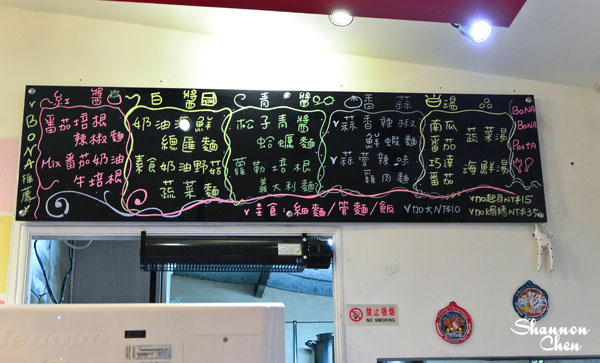 V BONA推薦
紅醬
番茄培根
辣椒麵
Mix番茄奶油
牛培根
白醬
奶油海鮮
總匯麵
素食奶油野菇
蔬菜麵
青醬
松子青醬
蛤蠣麵
羅勒培根
義大利麵
香蒜
V蒜香辣椒
鮮蝦麵
V蒜蓉辣味
雞肉麵
湯
南瓜 蔬菜湯
番茄
巧達 海鮮湯
番茄
BONA
BONA
PASTA
V主食:細麵/管麵/飯
V加大NT$10
V加起司NT$15
V加焗烤NT$35
禁止吸煙
NO SMOKING
lenovo
Shannon
Chen